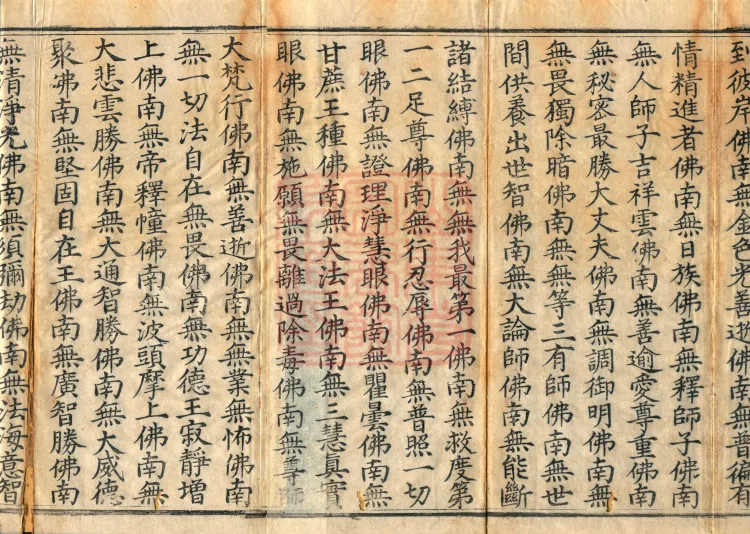 到彼岸佛南無金色光善逝佛南無普遍有
情精進者佛南無日族佛南無釋師子佛南
無人師子吉祥雲佛南無善逾愛尊重佛南
無秘密最勝大丈夫佛南無調御明佛南無
無畏獨除暗佛南無無等三有師佛南無世
間供養出世智佛南無大論師佛南無能斷
諸結縛佛南無無我最第一佛南無救度第
一二足尊佛南無行忍辱佛南無普照一切
眼佛南無證理淨慧眼佛南無瞿曇佛南無
甘蔗王種佛南無大法王佛南無三慧真實
眼佛南無施願無畏離過除毒佛南無
大梵行佛南無善逝佛南無無業無怖佛南
無一切法自在無畏佛南無功德王寂靜增
上佛南無帝釋幢佛南無波頭摩上佛南無
大悲雲勝佛南無大通智勝佛南無大威德
聚佛南無堅固自在王佛南無廣智勝佛南
無清淨光佛南無須彌劫佛南無法海意智